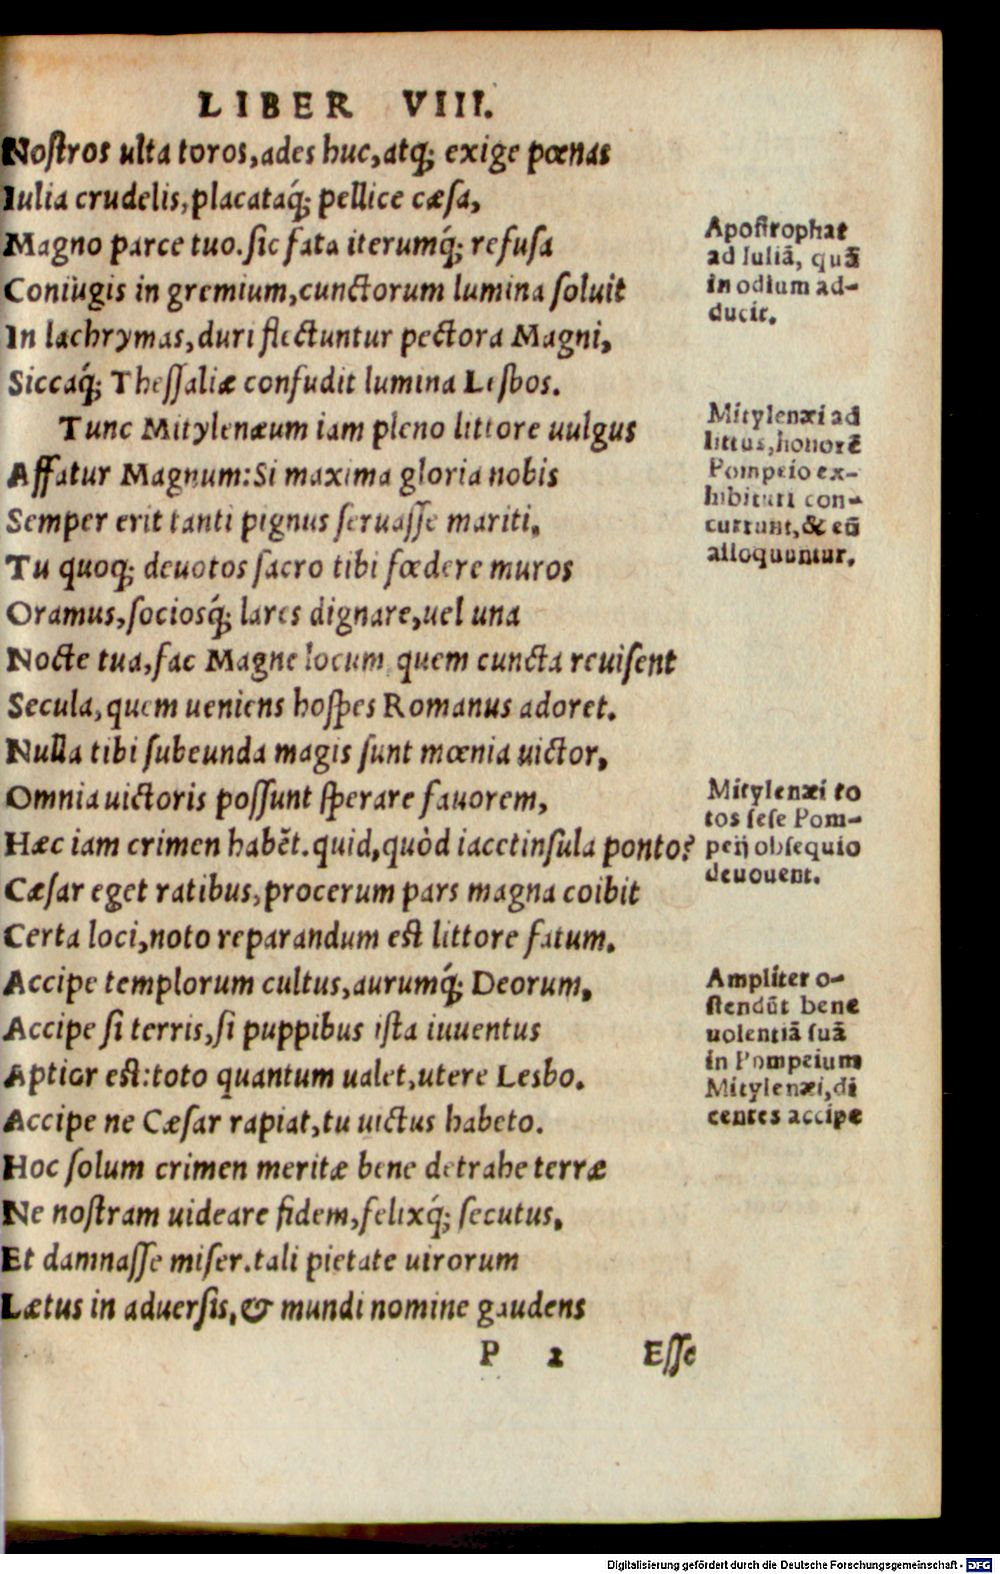 LIBER VIII.
Nostros ulta toros, ades huc, atq; exige pœnas
Iulia crudelis, placataq́; pellice cæsa,
Magno parce tuo. sic fata iterumq́; refusa
Coniügis in gremium, cunctorum lumina soluit
In lachrymas, duri flectuntur pectora Magni,
Siccaq́; Thessaliæ confudit lumina Lesbos.
Tunc Mitylenæum iam pleno littore uulgus
Affatur Magnum: Si maxima gloria nobis
Semper erit tanti pignus seruasse mariti,
Tu quoq; deuotos sacro tibi fœdere muros
Oramus, sociosq́; lares dignare, uel una
Nocte tua, fac Magne locum, quem cuncta reuisent
Secula, quem ueniens hospes Romanus adoret.
Nulla tibi subeunda magis sunt mœnia uictor,
Omnia uictoris possunt sperare fauorem,
Hæc iam crimen habẽt. quid, quòd iacet insula ponto?
Cæsar eget ratibus, procerum pars magna coibit
Certa loci, noto reparandum est littore fatum.
Accipe templorum cultus, aurumq́; Deorum,
Accipe si terris, si puppibus ista iuuentus
Aptior est: toto quantum ualet, utere Lesbo.
Accipe ne Cæsar rapiat, tu uictus habeto.
Hoc solum crimen meritæ bene detrahe terræ
Ne nostram uideare fidem, felixq́; secutus,
Et damnasse miser. tali pietate uirorum
Lætus in aduersis, & mundi nomine gaudens
P 2 Esse
Apostrophat
ad Iuliã, quã
in odium ad-
ducit.
Mitylenæi ad
littus, honorẽ
Pompeio ex-
hibituri con-
currunt, & eũ
alloquuntur.
Mitylenæi to
tos sese Pom-
peij obsequio
deuouent.
Ampliter o-
stendũt bene
uolentiã suã
in Pompeium
Mitylenæi, di
centes accipe
Digitalisierung gefördert durch die Deutsche Forschungsgemeinschaft - DFG